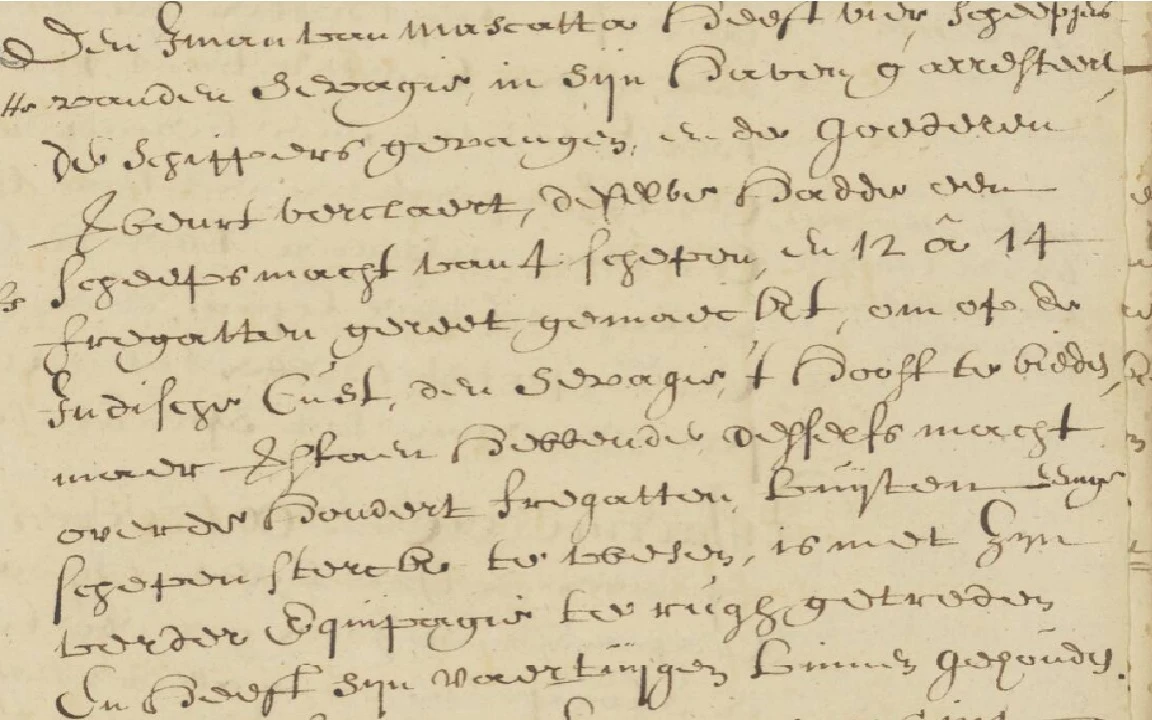 Den Iman van Mascatta heeft vier scheepjes
vanden Sevagie, in sijn haven g'arresteert
de schippers gevangen, en de goederen
verbeurt verclaert, deselve hadde een
scheepsmacht van 4 schepen, en 12 â 14
fregatten gereet gemaeckt, om op de
Indische Cust, den Sevagie, 't hooft te bieden,
maer verstaen hebbende desselfs macht
over de hondert fregatten, buijten eenige
schepen sterck te wesen, is met zijn
verder Equipagie te rugh getreden
En heeft sijn vaertuijgen binnen gehouden.